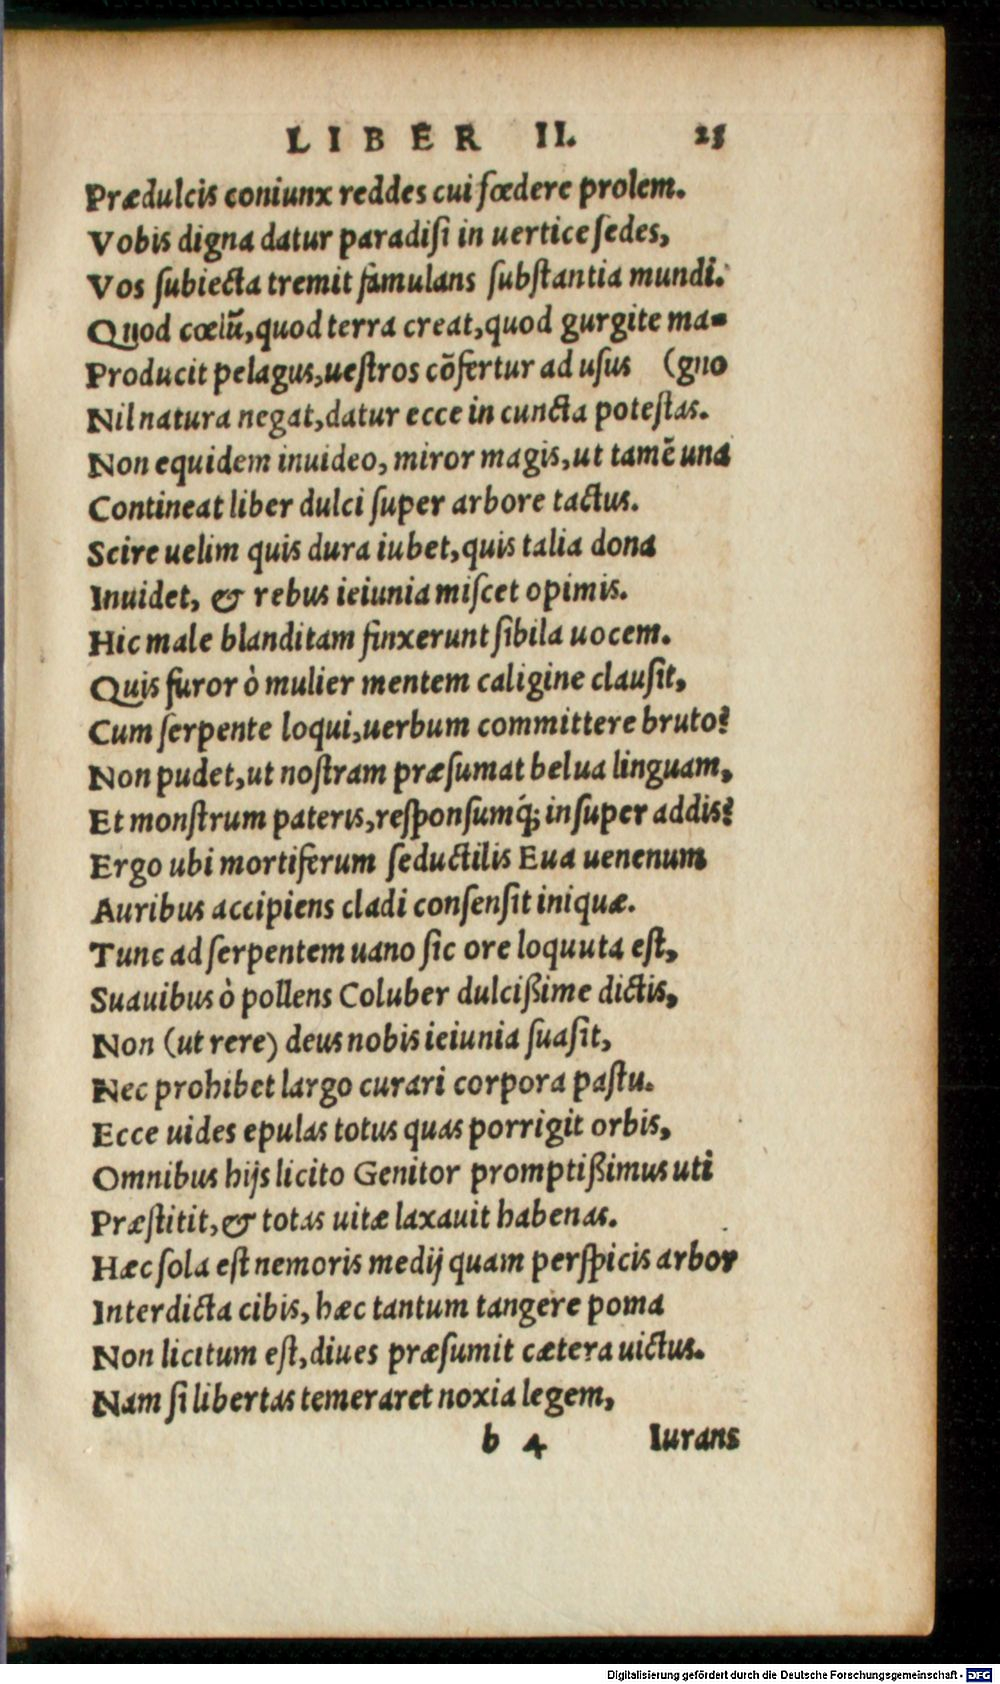 LIBER II. 25
Prædulcis coniunx reddes cui fœdere prolem.
Vobis digna datur paradisi in uertice sedes,
Vos subiecta tremit famulans substantia mundi.
Quod cœlū, quod terra creat, quod gurgite ma-
Producit pelagus, uestros cōfertur ad usus (gno
Nil natura negat, datur ecce in cuncta potestas.
Non equidem inuideo, miror magis, ut tamē una
Contineat liber dulci super arbore tactus.
Scire uelim quis dura iubet, quis talia dona
Inuidet, & rebus ieiunia miscet opimis.
Hic male blanditam finxerunt sibila uocem.
Quis furor ò mulier mentem caligine clausit,
Cum serpente loqui, uerbum committere bruto?
Non pudet, ut nostram præsumat belua linguam,
Et monstrum pateris, responsumq́; insuper addis?
Ergo ubi mortiferum seductilis Eua uenenum
Auribus accipiens cladi consensit iniquæ.
Tunc ad serpentem uano sic ore loquuta est,
Suauibus ò pollens Coluber dulcißime dictis,
Non (ut rere) deus nobis ieiunia suasit,
Nec prohibet largo curari corpora pastu.
Ecce uides epulas totus quas porrigit orbis,
Omnibus hijs licito Genitor promptißimus uti
Præstitit, & totas uitæ laxauit habenas.
Hæc sola est nemoris medij quam perspicis arbor
Interdicta cibis, hæc tantum tangere poma
Non licitum est, diues præsumit cætera uictus.
Nam si libertas temeraret noxia legem,
b 4 Iurans
Digitalisierung gefördert durch die Deutsche Forschungsgemeinschaft - DFG